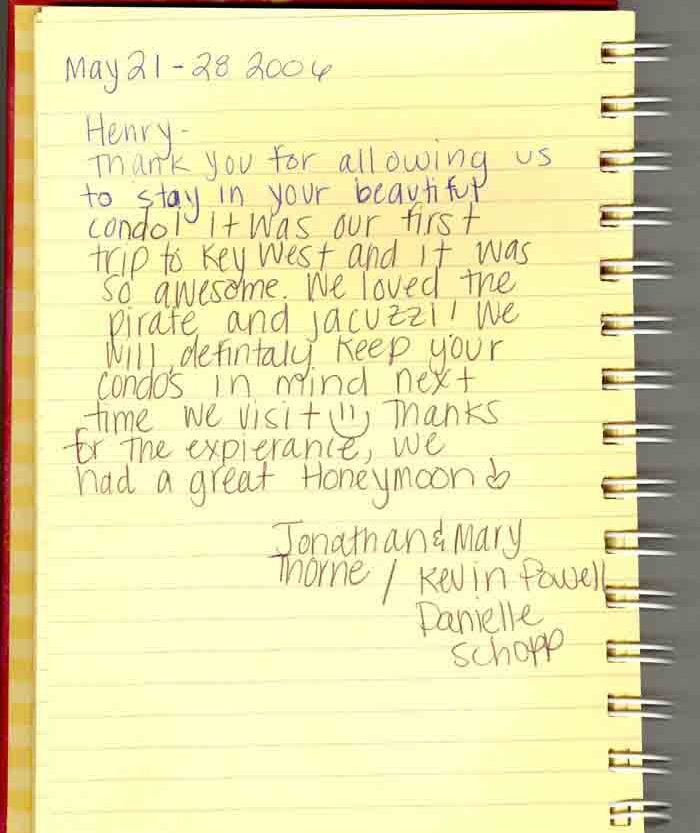 May 21 - 28 2006
Henry-
Thank you for allowing us
to stay in your beautiful
condo! It was our first
trip to Key West and it was
so awesome. We loved the
pirate and jacuzzi! We
will defintaly keep your
condo's in mind next
time we visit Thanks
for the expierance, we
had a great Honeymoon
Jonathan & Mary
Thorne / Kevin Powell
Danielle
Schopp